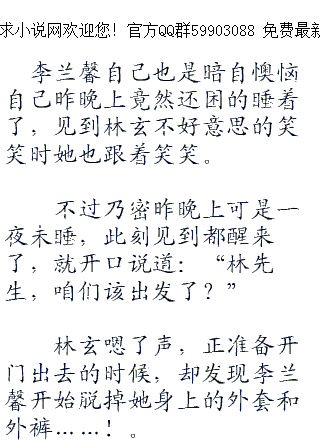 求小说网欢迎您！官方QQ群59903088 免费最新
李兰馨自己也是暗自懊恼
自己昨晚上竟然还困的睡着
了，见到林玄不好意思的笑
笑时她也跟着笑笑。
不过乃密昨晚上可是一
夜未睡，此刻见到都醒来
了，就开口说道：“林先
生，咱们该出发了？”
林玄嗯了声，正准备开
门出去的时候，却发现李兰
馨开始脱掉她身上的外套和
外裤……！。